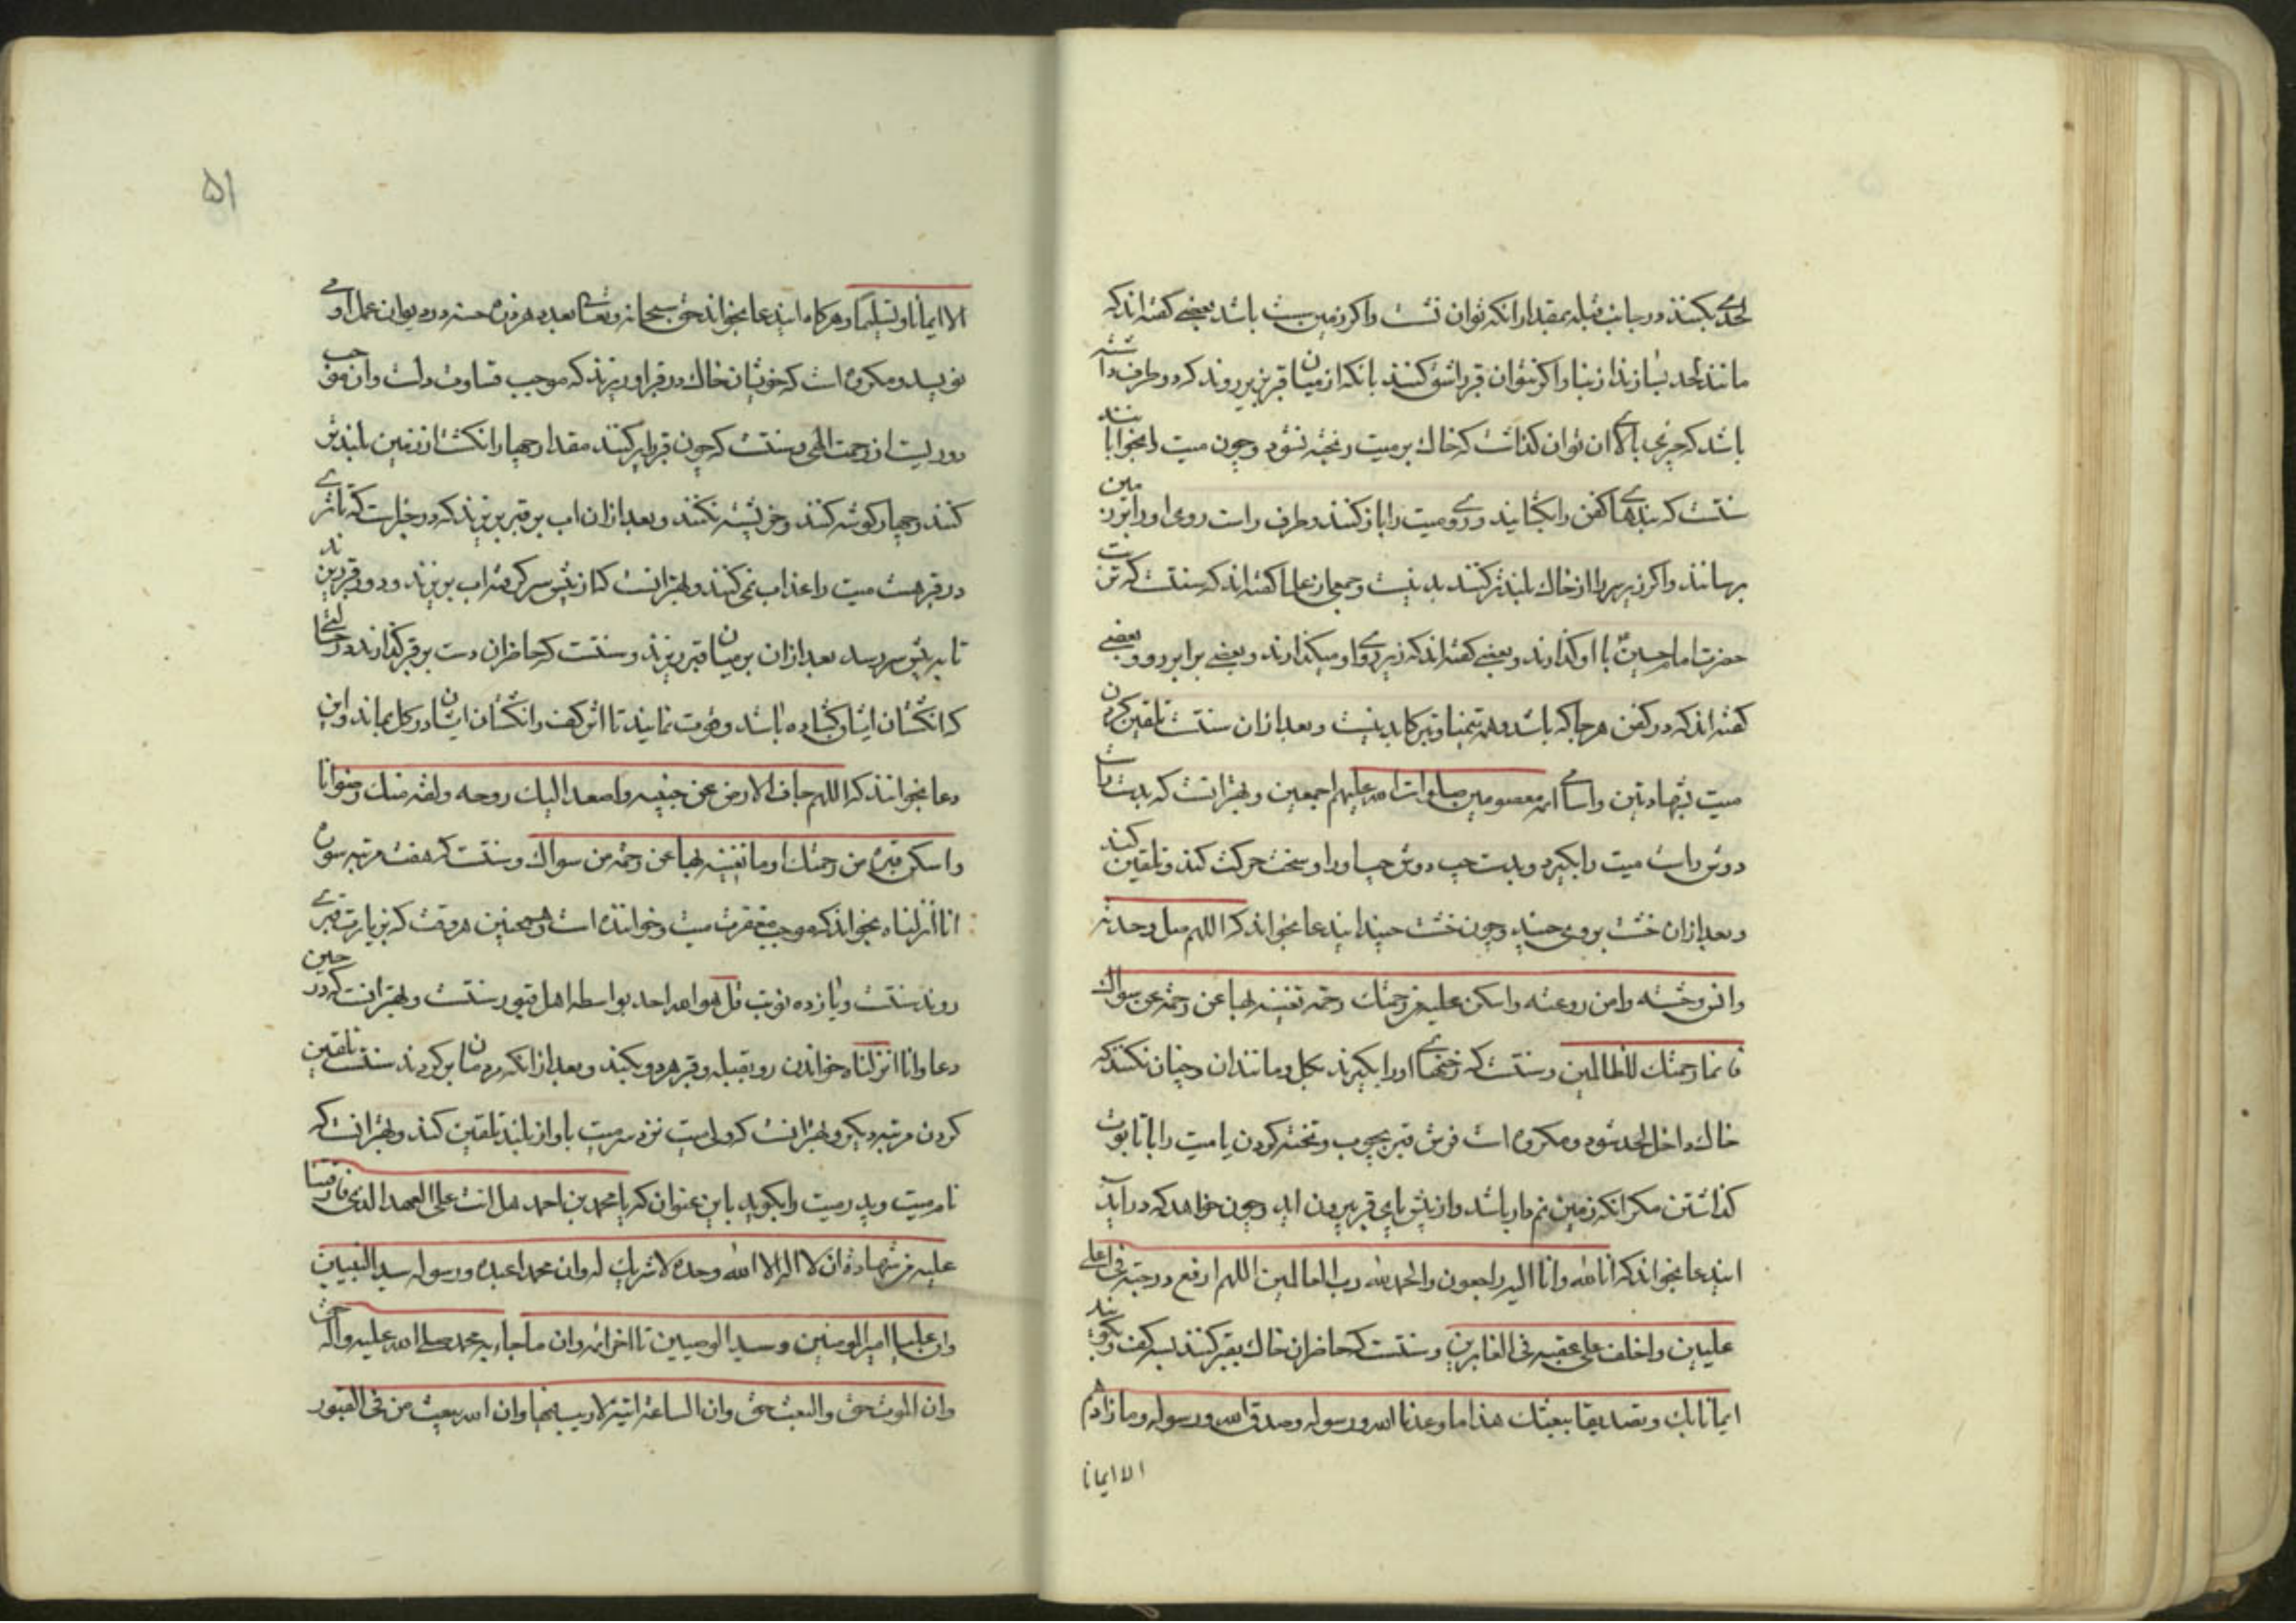 لحدی بکنند در جانب قبله بمقدار انکه توان نشست واکر زمین سست باشد بعضی کفته اند که
مانند لحد بسازند از بنا واکر نتوان قبر را شق کنند بانکه از میان قبر بزیر روند که دو طرف داشته
باشد که چیزی بالای ان توان کذاشت که خاک بر میت ریخته نشود وچون میت را بخوابانند
سنتست که بندهای کفن را بکشایند وروی میت را باز کنند وطرف راست روی او را بزمین
برسانند واکر زیر سر را از خاک بلندتر کنند بد نیست وجمعی از علما کفته اند که سنتست که تربت
حضرت امام حسین با او کذارند وبعضی کفته اند که زیر روی او میکذارند وبعضی برابر رو وبعضی
کفته اند که در کفن هر جا که باشد وهمه تیمنا وتبرکا بد نیست وبعد از ان سنتست تلقین کردن
میت بشهادتین واسامی ائمه معصومین صلوات الله علیهم اجمعین وبهتر انست که بدست راست
دوش راست میت را بکیرد وبدست چپ دوش چپ او را وسخت حرکت کند وتلقین کند
وبعد از ان خشت بر وی چیند وچون خشت چیند این دعا بخواند که اللهم صل وحدته
وانس وحشته وامن روعته واسکن علیه من رحمتک رحمة تغنیه بها عن رحمة من سواک
فانما رحمتک للظالمین وسنتست که رخنهای او را بکیرند بکل ومانند ان وچنان نکنند که
خاک داخل لحد شود ومکروه است فرش قبر بچوب وتخته کردن یا میت را با تابوت
کذاشتن مکر انکه زمین نم دار باشد واز پیش پای قبر بیرون اید وچون خواهد که در آید
این دعا بخواند که انا لله وانا الیه راجعون والحمد لله رب العالمین اللهم ارفع درجته فی اعلی
علیین واخلف علی عقبه فی الغابرین وسنتست که حاضران خاک بقبر کنند بسه کف وبکویند
ایمانا بک وتصدیقا ببعثک هذا ما وعدنا الله ورسوله وصدق الله ورسوله وما زادهم
الا ایمانا
۵۱
الا ایمانا وتسلیما وهر کاه این دعا بخواند حق سبحانه وتعالی بعدد هر ذره حسنه در دیوان عمل او می
نویسد ومکروه است که خویشان خاک در قبر او ریزند که موجب قساوت دلست وان موجب
دوریست از رحمت الهی وسنتست که چون قبر را پر کنند مقدار چهار انکشت از زمین بلندتر
کنند وچهار کوشه کنند وخر پشته نکنند وبعد از ان اب بر قبر بریزند که در خبرست که تا تری
در قبر هست میت را عذاب نمی کنند وبهتر انست که از پیش سر کرفته اب بریزند ودور قبر ریزند
تا به پیش سر رسد بعد از ان بر میان قبر ریزند وسنتست که حاضران دست بر قبر کذارند در حالتی
که انکشتان ایشان کشاده باشد وقوت نمایند تا اثر کف وانکشتان ایشان در کل بماند واین
دعا بخوانند که اللهم جاف الارض عن جنبیه واصعد الیک روحه ولقه منک رضوانا
واسکن قبره من رحمتک ما تغنیه بها عن رحمة من سواک وسنتست که هفت مرتبه سوره
انا انزلناه بخواند که موجب مغفرت میت وخواننده است وهمچنین هر وقت که بزیارت قبری
روند سنتست ویازده نوبت قل هو الله احد بواسطه اهل قبور سنتست وبهتر انست که در حین
دعا وانا انزلناه خواندن رو بقبله وقبر هر دو بکند وبعد از انکه مردمان بر کردند سنتست تلقین
کردن مرتبه دیکر وبهتر انست که ولی میت نزد سر میت باواز بلند تلقین کند وبهتر انست که
نام میت وپدر میت را بکوید باین عنوان که یا محمد بن احمد هل انت علی العهد الذی فارقتنا
علیه من شهادة ان لا اله الا الله وحده لا شریک له وان محمدا عبده ورسوله سید النبیین
وان علیا امیر المؤمنین وسید الوصیین تا اخر ائمه وان ما جاء به محمد صلی الله علیه واله حق
وان الموت حق والبعث حق وان الساعة اتیة لا ریب فیها وان الله یبعث من فی القبور